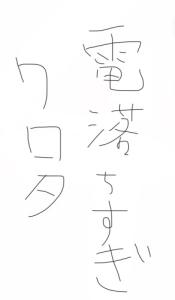 電落ちすぎ
クロタ